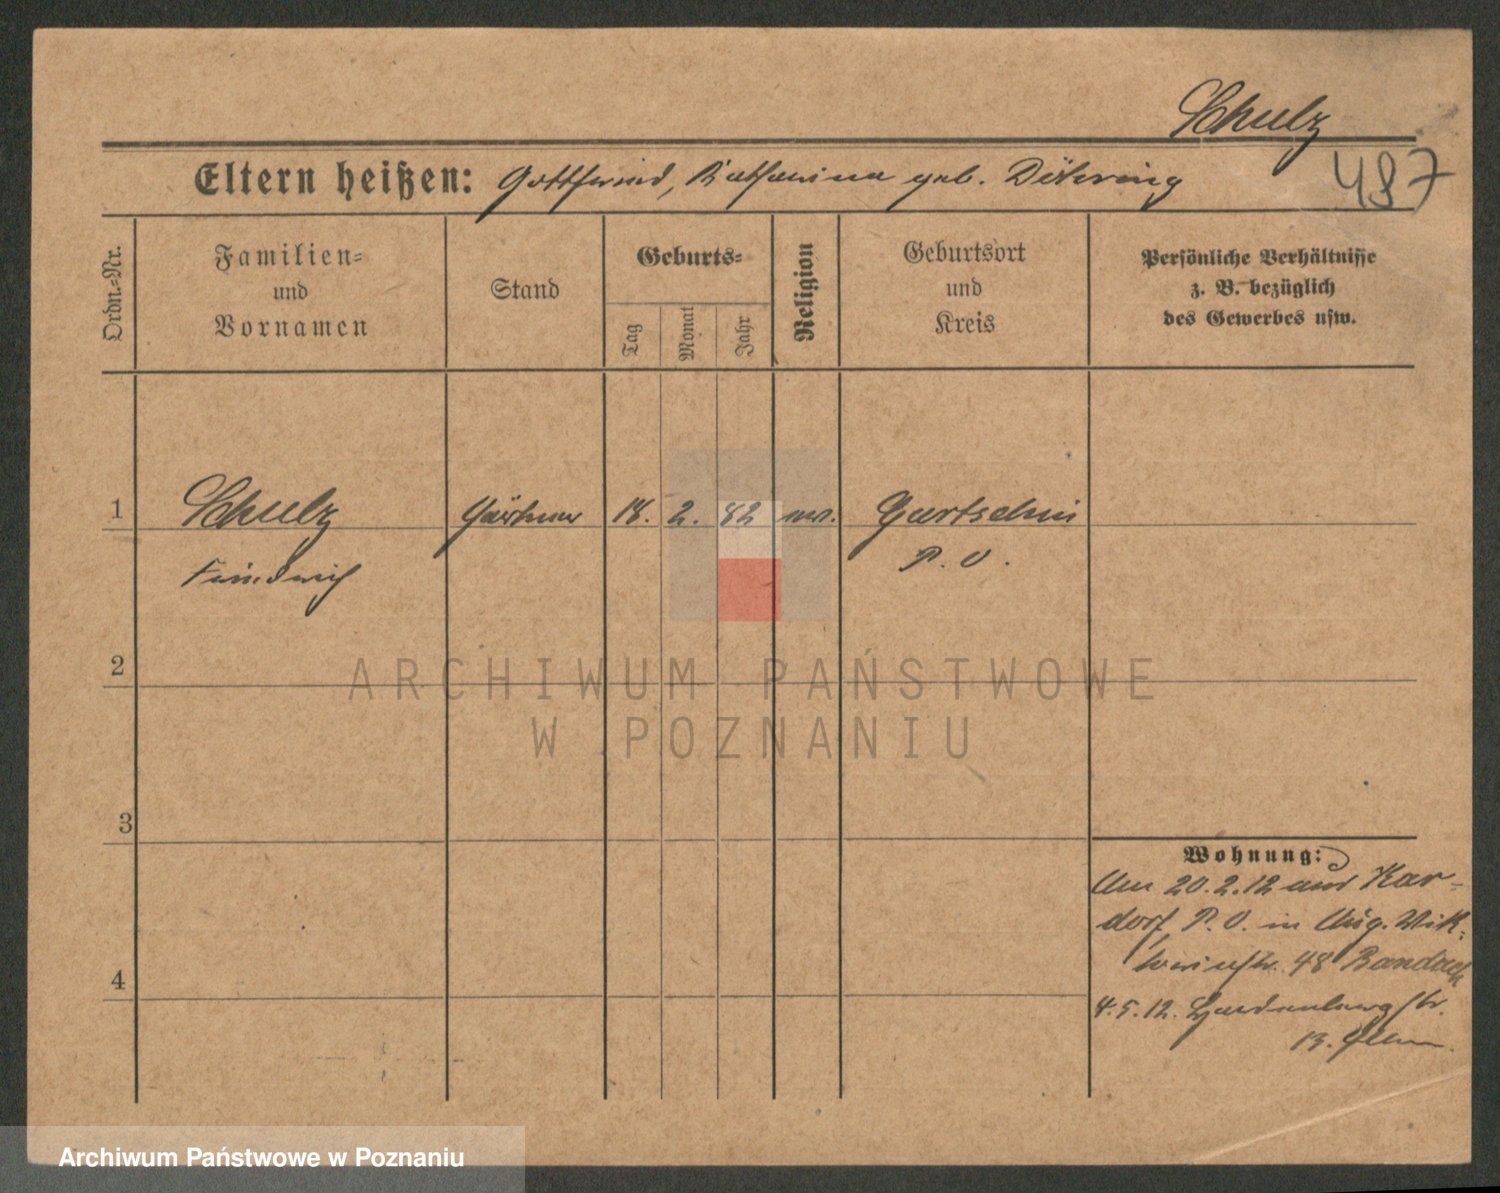 Schulz
Eltern heißen: Gottfried, Katharina geb. Döhring
487
Ordn.-Nr.
Familien-
und
Vornamen
Stand
Geburts-
Tag
Monat
Jahr
Religion
Geburtsort
und
Kreis
Persönliche Verhältnisse
z. B. bezüglich
des Gewerbes usw.
1
Schulz
Gärtner
18. 2. 82
ev.
Gartschin
Friedrich
P. O.
2
ARCHIWUM PAŃSTWOWE
W POZNANIU
3
4
Wohnung:
Am 20.2.12 aus Kar-
dorf, P. O. in Aug. Vikt.
48
4.5.12. Hardenbergstr.
13.
Archiwum Państwowe w Poznaniu